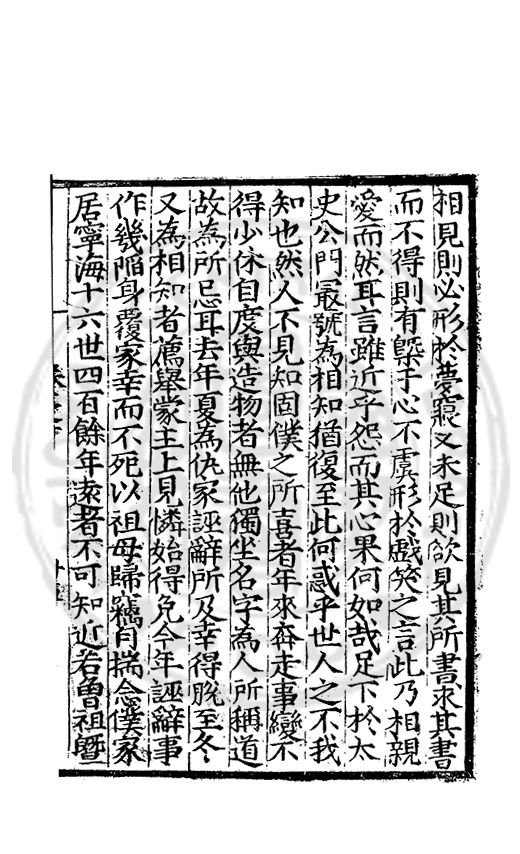 相見則必形於夢寢又未足則欲見其所書求其書
而不得則有槩于心不虞形於戲笑之言此乃相親
愛而然耳言雖近乎怨而其心果何如哉足下於太
史公門最號為相知猶復至此何惑乎世人之不我
知也然人不見知固僕之所喜者年來奔走事變不
得少休自度與造物者無他獨坐名字為人所稱道
故為所忌耳去年夏為仇家誣辭所及幸得脫至冬
又為相知者薦舉蒙主上見憐始得免今年誣辭事
作幾陷身覆家幸而不死以祖母歸竊自揣念僕家
居寧海十六世四百餘年遠者不可知近若魯祖曁